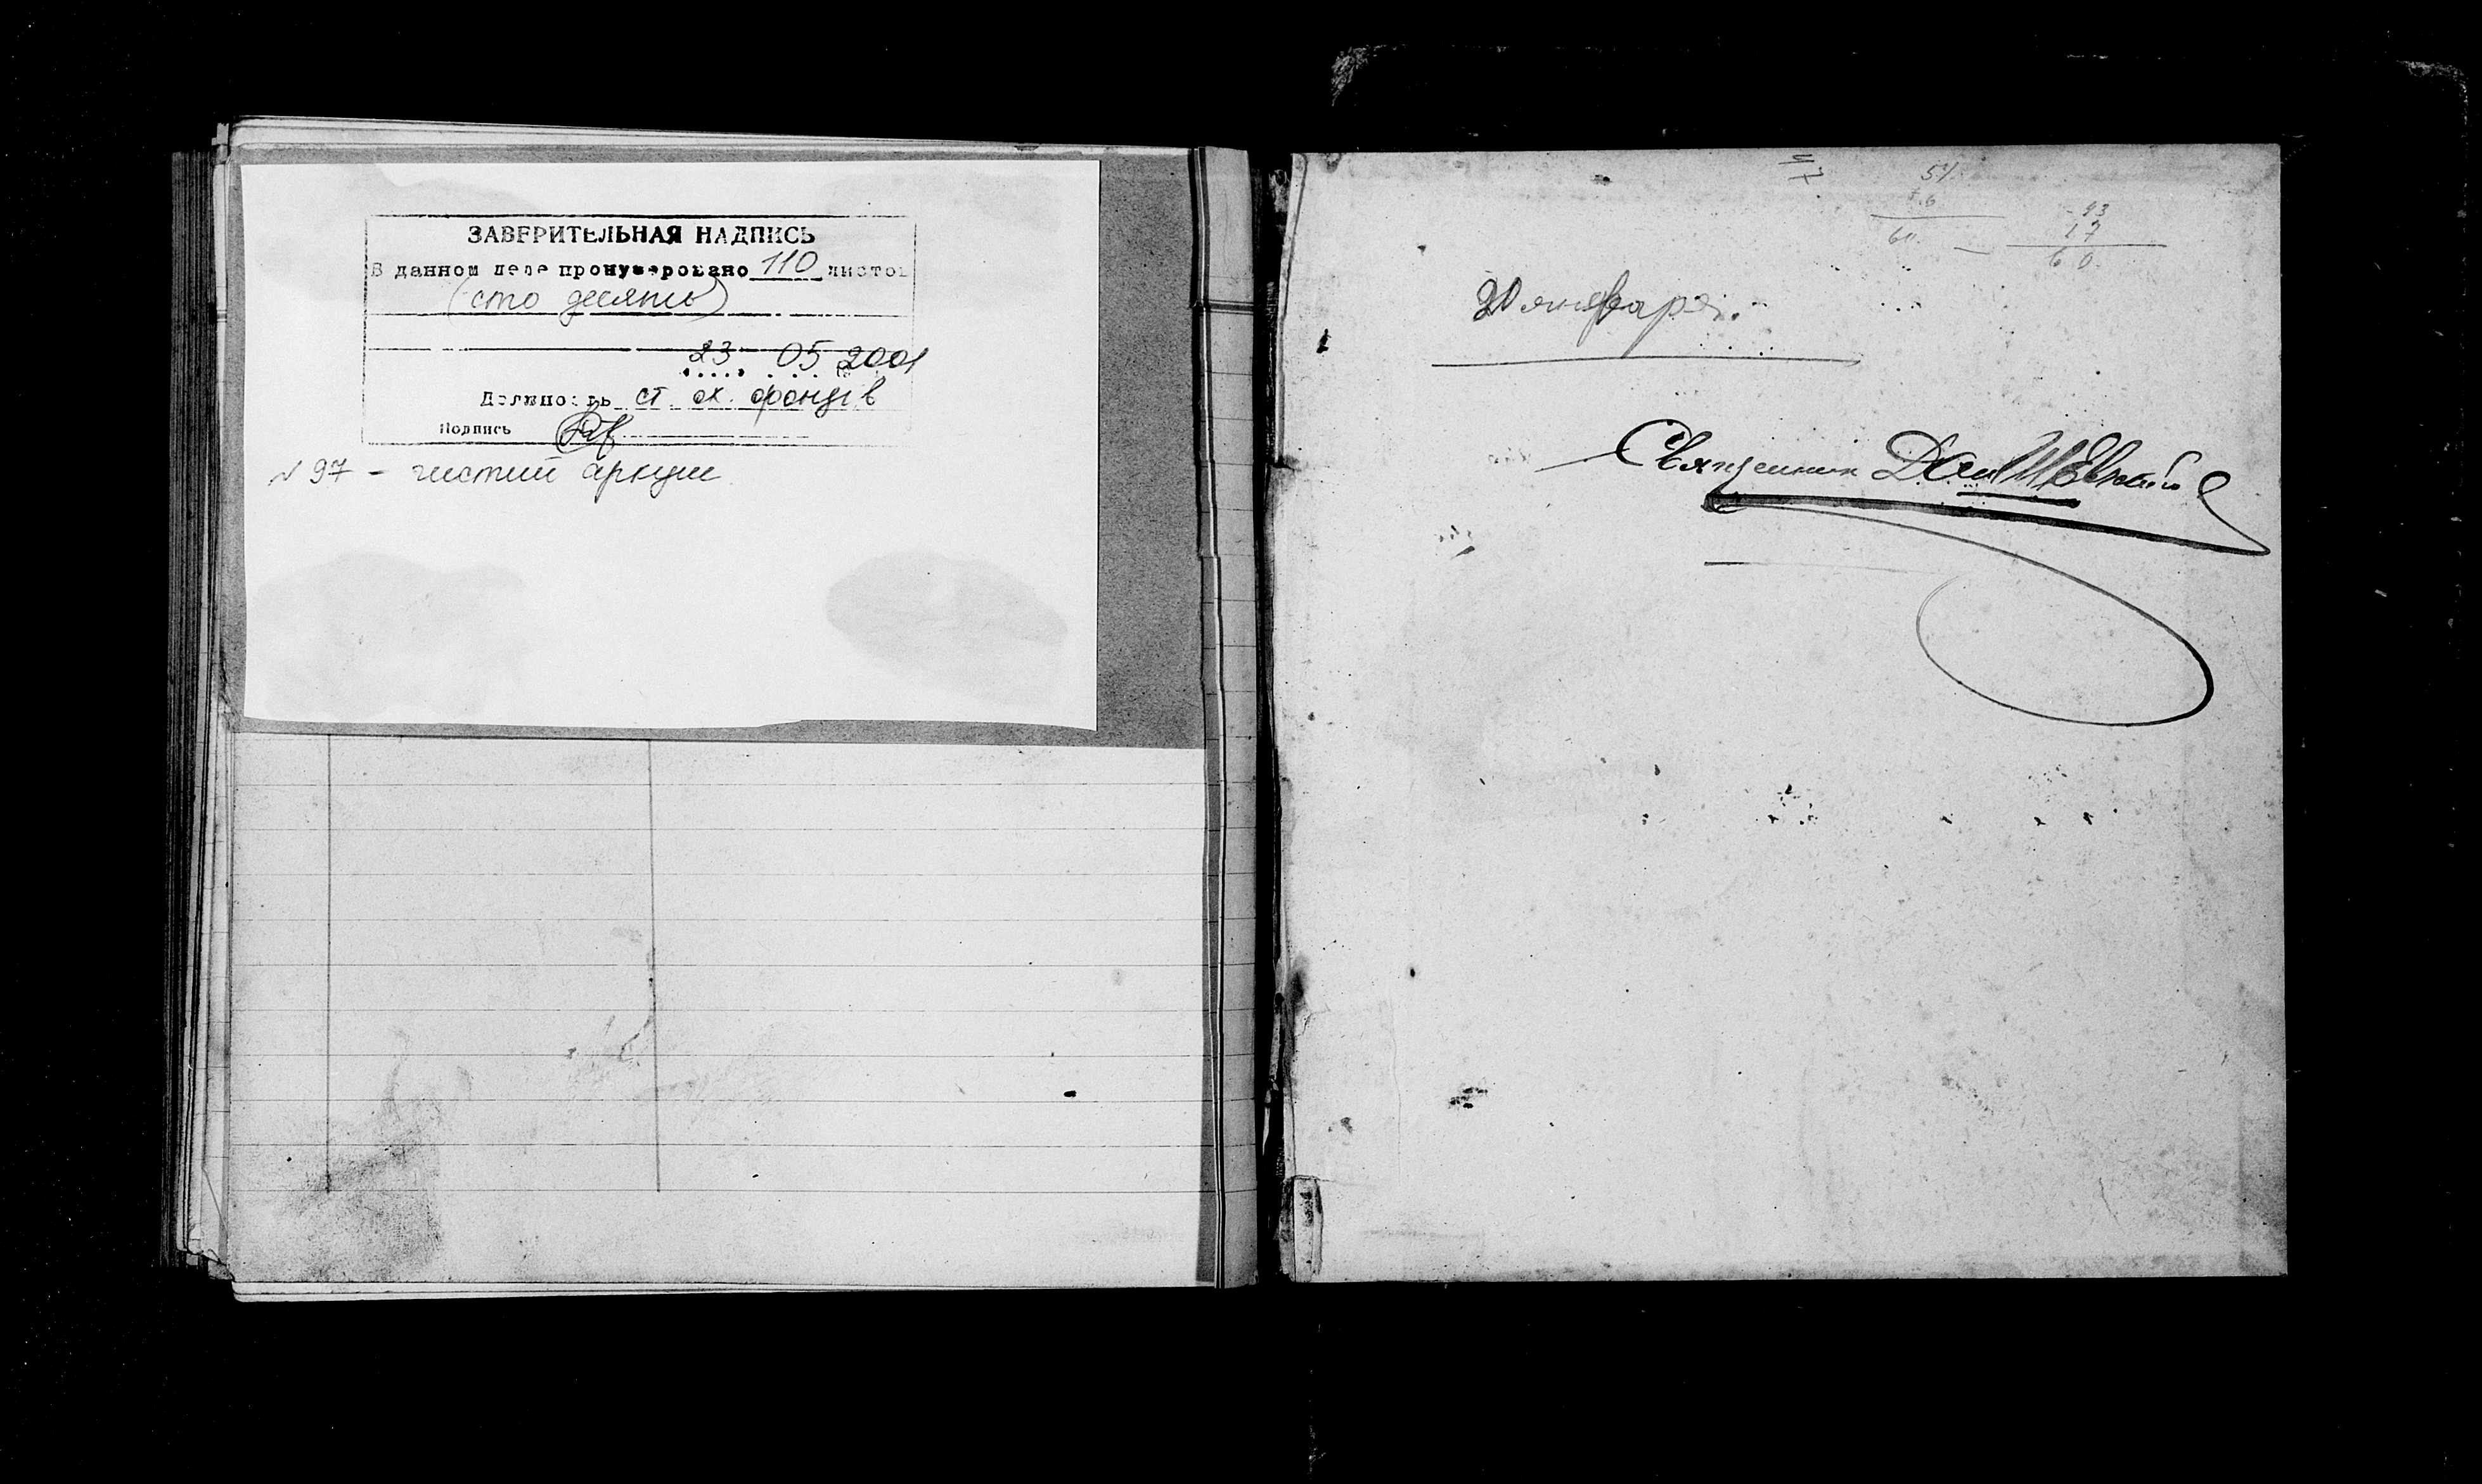 ЗАВЕРИТЕЛЬНАЯ НАДПИСЬ
В данном деле пронумеровано 110 листов
(сто десять)
23 05 2001
Должность ст. ох. фондів
Подпись
№ 97 - чистий аркуш
54
6
60
43
17
60
20 января.
Священник